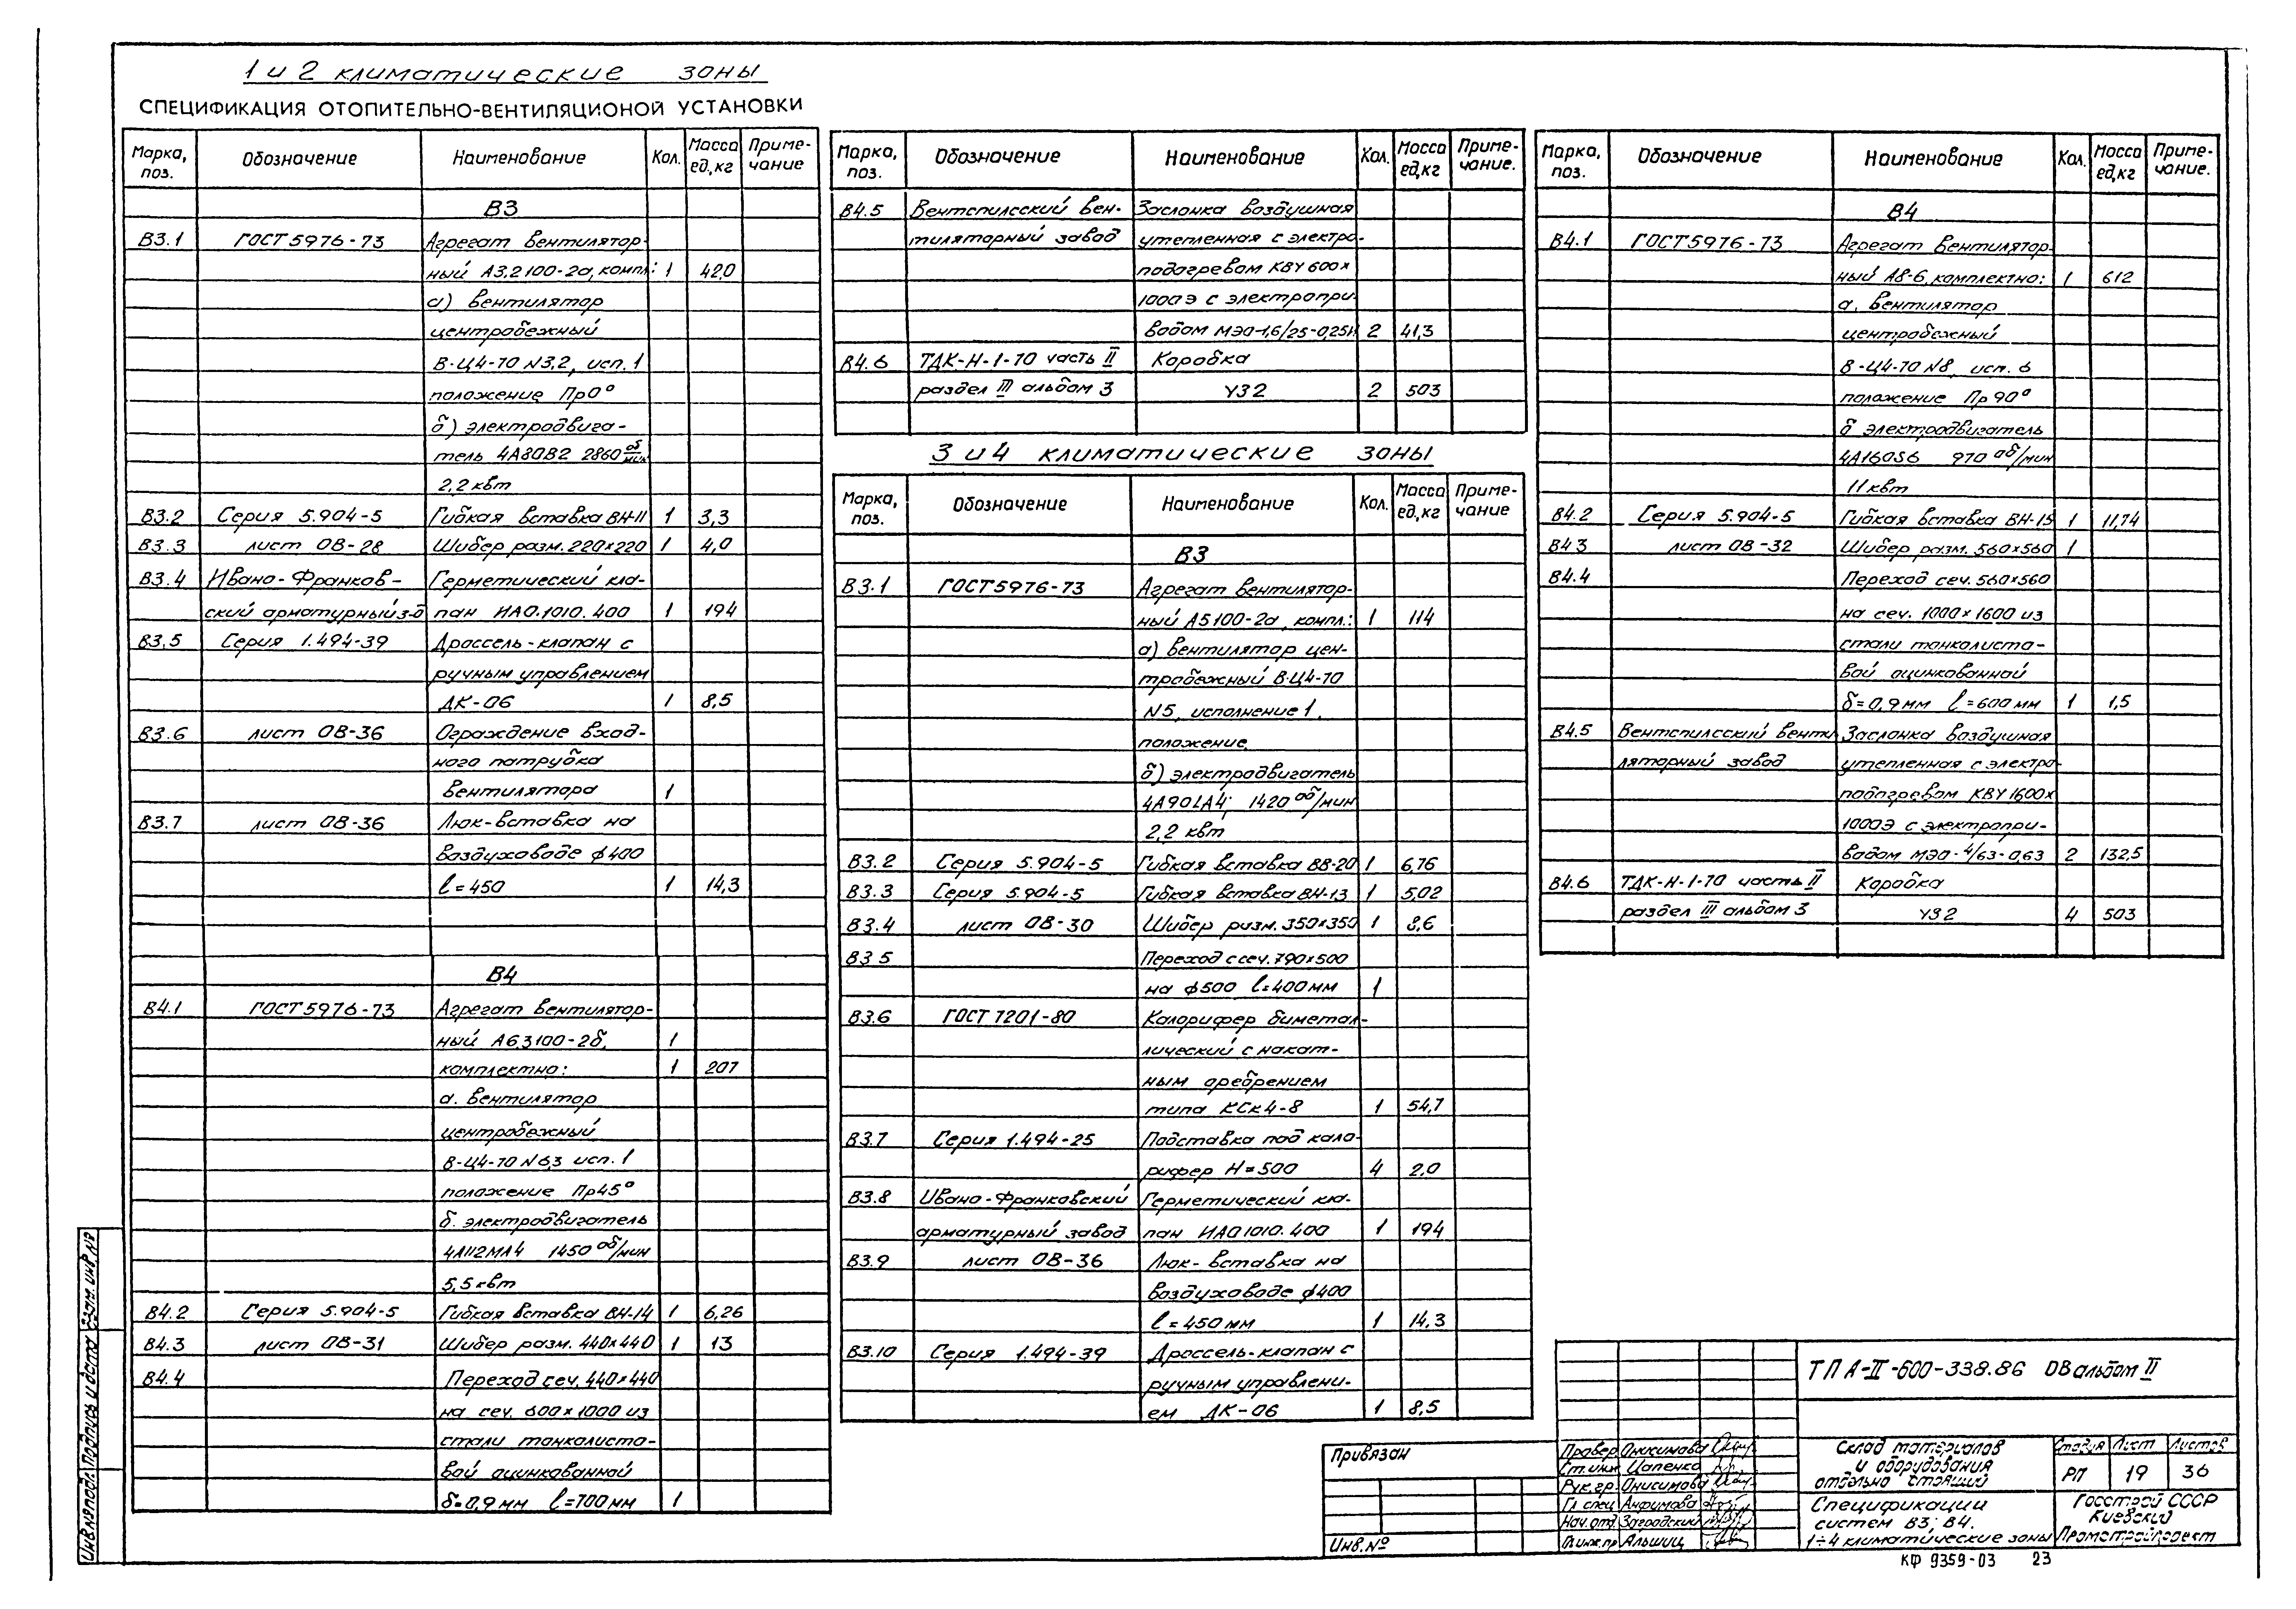 1 и 2 климатические зоны
СПЕЦИФИКАЦИЯ ОТОПИТЕЛЬНО-ВЕНТИЛЯЦИОНОЙ УСТАНОВКИ
Марка, поз. Обозначение Наименование Кол. Масса ед,кг Приме-чание
В3
В3.1 ГОСТ 5976-73 Агрегат вентилятор-
ный А3,2100-2а, компл: 1 42,0
а) вентилятор
центробежный
В-Ц4-70 N3,2, исп. 1
положение Пр0°
б) электродвига-
тель 4А80В2 2860 об/мин
2,2 квт
В3.2 Серия 5.904-5 Гибкая вставка ВН-11 1 3,3
В3.3 лист ОВ-28 Шибер разм. 220х220 1 4,0
В3.4 Ивано-Франков- Герметический кла-
ский арматурный з-д пан ИА0.1010.400 1 194
В3.5 Серия 1.494-39 Дроссель-клапан с
ручным управлением
ДК-06 1 8,5
В3.6 лист ОВ-36 Ограждение вход-
ного патрубка
вентилятора 1
В3.7 лист ОВ-36 Люк-вставка на
воздуховоде ф400
ℓ=450 1 14,3
В4
В4.1 ГОСТ 5976-73 Агрегат вентилятор-
ный А6,3100-2б, 1
комплектно: 1 207
а. вентилятор
центробежный
В-Ц4-70 N6,3 исп. 1
положение Пр45°
б. электродвигатель
4А112МА4 1450 об/мин
5,5 квт
В4.2 Серия 5.904-5 Гибкая вставка ВН-14 1 6,26
В4.3 лист ОВ-31 Шибер разм. 440х440 1 13
В4.4 Переход сеч. 440х440
на сеч. 600х1000 из
стали тонколисто-
вой оцинкованной
δ=0,9 мм ℓ=700 мм 1
Марка, поз. Обозначение Наименование Кол. Масса ед,кг Приме-чание.
В4.5 Вентспилсский вен- Заслонка воздушная
тиляторный завод утепленная с электро-
подогревом КВУ 600х
1000Э с электропри-
водом МЭО-1,6/25-0,25 2 41,3
В4.6 ТДК-Н-1-70 часть II Коробка
раздел III альбом 3 У32 2 503
3 и 4 климатические зоны
Марка, поз. Обозначение Наименование Кол. Масса ед,кг Приме-чание
В3
В3.1 ГОСТ 5976-73 Агрегат вентилятор-
ный А5100-2а, компл.: 1 114
а) вентилятор цен-
тробежный В-Ц4-70
N5, исполнение 1,
положение
б) электродвигатель
4А90LА4; 1420 об/мин
2,2 квт
В3.2 Серия 5.904-5 Гибкая вставка ВВ-20 1 6,76
В3.3 Серия 5.904-5 Гибкая вставка ВН-13 1 5,02
В3.4 лист ОВ-30 Шибер разм. 350х350 1 8,6
В3.5 Переход с сеч. 790х500
на ф500 ℓ=400мм 1
В3.6 ГОСТ 7201-80 Калорифер биметал-
лический с накат-
ным оребрением
типа КСк4-8 1 54,7
В3.7 Серия 1.494-25 Подставка под кало-
рифер Н=500 4 2,0
В3.8 Ивано-Франковский Герметический кла-
арматурный завод пан ИА01010.400 1 194
В3.9 лист ОВ-36 Люк-вставка на
воздуховоде ф400
ℓ=450 мм 1 14,3
В3.10 Серия 1.494-39 Дроссель-клапан с
ручным управлени-
ем ДК-06 1 8,5
Марка, поз. Обозначение Наименование Кол. Масса ед,кг Приме-чание.
В4
В4.1 ГОСТ 5976-73 Агрегат вентилятор-
ный А8-6, комплектно: 1 612
а. вентилятор
центробежный
В-Ц4-70 N8, исп. 6
положение Пр 90°
б электродвигатель
4А160S6 970 об/мин
11 квт
В4.2 Серия 5.904-5 Гибкая вставка ВН-15 1 11,74
В4.3 лист ОВ-32 Шибер разм. 560х560 1
В4.4 Переход сеч. 560х560
на сеч. 1000х1600 из
стали тонколисто-
вой оцинкованной
δ=0,9мм ℓ=600мм 1 1,5
В4.5 Вентспилсский венти Заслонка воздушная
ляторный завод утепленная с электро-
подогревом КВУ 1600х
1000Э с электропри-
водом МЭО-4/63-0,63 2 132,5
В4.6 ТДК-Н-1-70 часть II Коробка
раздел III альбом 3 У32 4 503
Взам. инв №
Подпись и дата
Инв.№подл.
Привязан
Инв.№
ТП А-II-600-338.86 ОВ альбом II
Провер. Онисимова
Ст.инж Цапенко
Рук.гр. Онисимова
Гл спец Анфимова
Нач.отд Загродский
Гл.инж.пр Альшиц
Склад материалов
и оборудования
отдельно стоящий
Стадия Лист Листов
РП 19 36
Спецификации
систем В3; В4.
1÷4 климатические зоны
Госстрой СССР
Киевский
Промстройпроект
КФ 9359-03 23